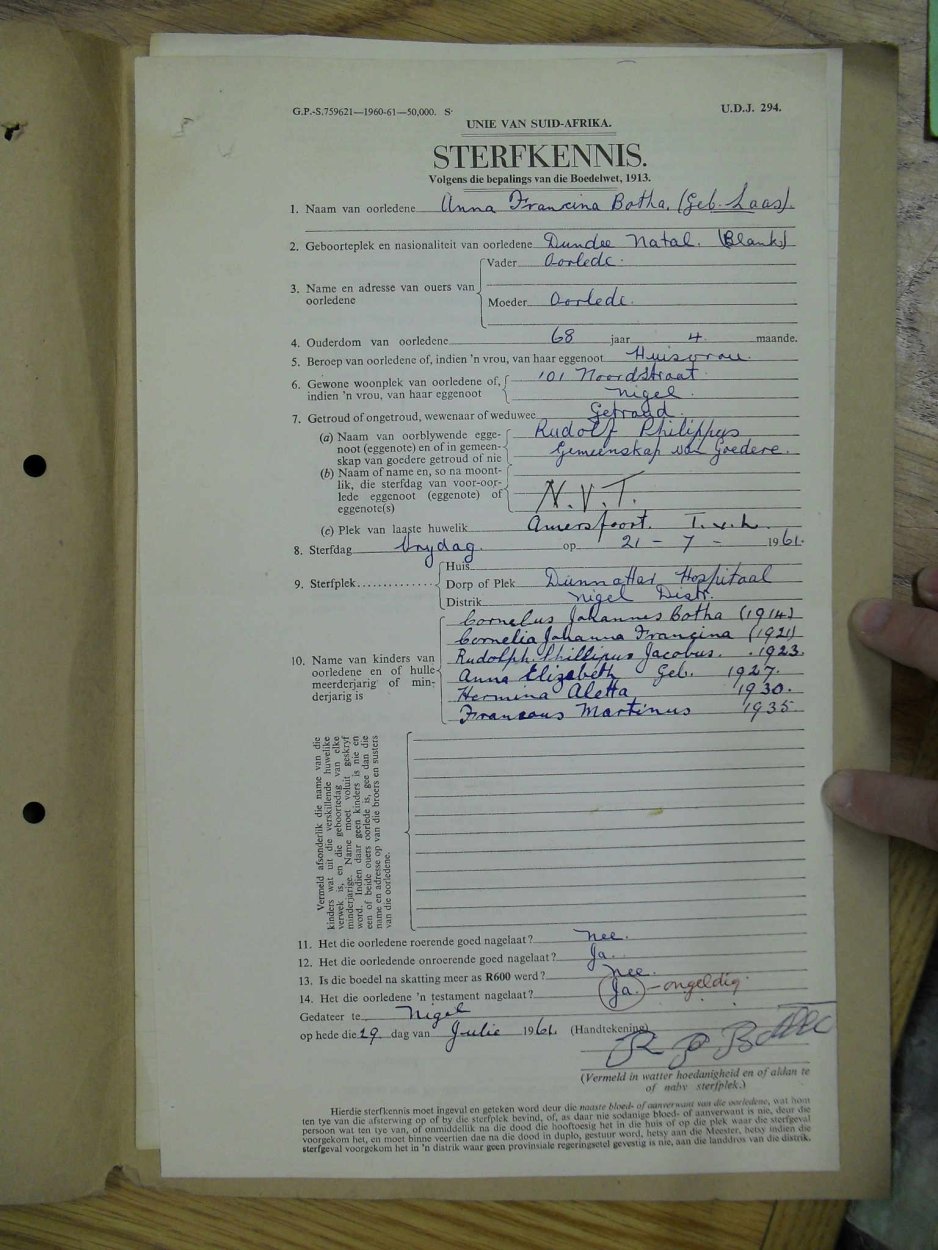 G.P.-S.759621—1960-61—50,000. S.
U.D.J. 294.
UNIE VAN SUID-AFRIKA.
STERFKENNIS.
Volgens die bepalings van die Boedelwet, 1913.
1. Naam van oorledene Anna Francina Botha. (Geb. Laas).
2. Geboorteplek en nasionaliteit van oorledene Dundee Natal. (Blank)
3. Name en adresse van ouers van oorledene
Vader Oorlede.
Moeder Oorlede.
4. Ouderdom van oorledene 68 jaar 4 maande.
5. Beroep van oorledene of, indien 'n vrou, van haar eggenoot Huisvrou.
6. Gewone woonplek van oorledene of, indien 'n vrou, van haar eggenoot
101 Noordstraat.
Nigel.
7. Getroud of ongetroud, wewenaar of weduwee Getroud.
(a) Naam van oorblywende eggenoot (eggenote) en of in gemeenskap van goedere getroud of nie
Rudolf Philippus
Gemeenskap van Goedere.
(b) Naam of name en, so na moontlik, die sterfdag van voor-oorlede eggenoot (eggenote) of eggenote(s)
N.V.T.
(c) Plek van laaste huwelik Amersfoort. T.v.L.
8. Sterfdag Vrydag. op 21 - 7 - 1961.
9. Sterfplek
Huis
Dorp of Plek Dunnottar Hospitaal
Distrik Nigel Distr.
10. Name van kinders van oorledene en of hulle meerderjarig of minderjarig is
Cornelus Johannes Botha (1914)
Cornelia Johanna Francina (1921)
Rudolph. Phillipus Jacobus. .1923.
Anna Elizabeth Geb. 1927.
Hermina Aletta 1930.
Francous Martinus 1935.
Vermeld afsonderlik die name van die
kinders wat uit die verskillende huwelike
verwek is, en die geboortedag van elke
minderjarige. Name moet voluit geskryf
word. Indien daar geen kinders is nie en
een of beide ouers oorlede is, gee dan die
name en adresse op van die broers en susters
van die oorledene.
11. Het die oorledene roerende goed nagelaat? Nee.
12. Het die oorledende onroerende goed nagelaat? Ja.
13. Is die boedel na skatting meer as R600 werd? Nee.
14. Het die oorledene 'n testament nagelaat? Ja. - ongeldig.
Gedateer te Nigel
op hede die 29 dag van Julie 1961. (Handtekening)
R P Botha
(Vermeld in watter hoedanigheid en of aldan te
of naby sterfplek.)
Hierdie sterfkennis moet ingeval en geteken word deur die naaste bloed- of aanverwant van die oorledene, wat hom
ten tye van die afsterwing op of by die sterfplek bevind, of, as daar nie sodanige bloed- of aanverwant is nie, deur die
persoon wat ten tye van, of onmiddellik na die dood die hooftoesig het in die huis of op die plek waar die sterfgeval
voorgekom het, en moet binne veertien dae na die dood in duplo, gestuur word, hetsy aan die Meester, hetsy indien die
sterfgeval voorgekom het in 'n distrik waar geen provinsiale regeringsetel gevestig is nie, aan die landdros van die distrik.